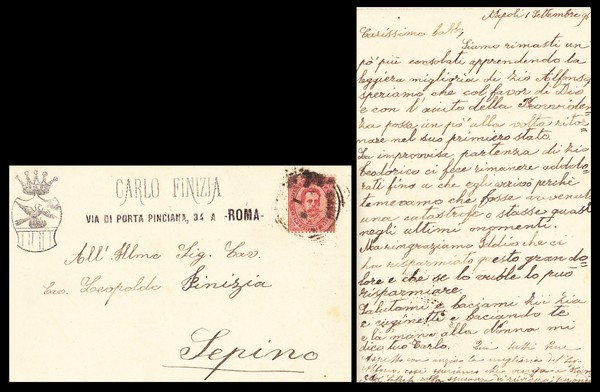 CARLO FINIZIA
VIA DI PORTA PINCIANA, 34 A -ROMA-
All' Illmo Sig. Cav.
Leopoldo Finizia
Sepino
Napoli 1 Settembre
Carissimo
Siamo rimasti un
pò più consolati apprendendo la
leggiera migliorìa di zio Alfonso
speriamo che col favor di Dio
e con l'aiuto della Provviden
za possa un pò alla volta ritor
nare nel suo primiero stato.
La improvvisa partenza di zio
Teodorico ci fece rimanere addolo
rati fino a che egli arrivò perchè
temevamo che fosse avvenuta
una catastrofe o stasse quasi
negli ultimi momenti.
Ma ringraziamo Iddio che ci
ha risparmiato questo gran do=
lore e che se lo vuole lo può
risparmiare.
Salutami e baciami zii zia
e cuginetti e baciando te
e la mano alla Nonna mi
dico tuo Carlo.